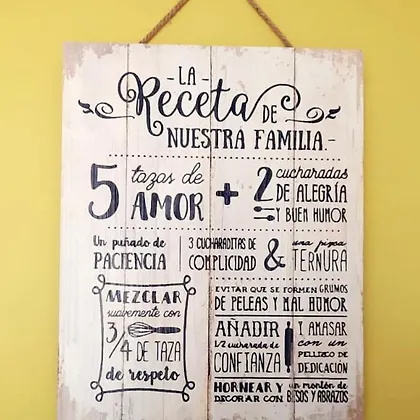 -LA-
Receta DE
NUESTRA FAMILIA.-
5 tazas de
AMOR
+
2 cucharadas
DE ALEGRÍA
Y BUEN HUMOR
Un puñado de
PACIENCIA
3 CUCHARADITAS DE
COMPLICIDAD
&
una pizca
TERNURA
MEZCLAR
suavemente con
3/4 DE TAZA
de respeto
EVITAR QUE SE FORMEN GRUMOS
DE PELEAS Y MAL HUMOR
AÑADIR
1/2 cucharada de
CONFIANZA
Y AMASAR
con un
PELLIZCO DE
DEDICACIÓN
HORNEAR Y
DECORAR CON
un montón de
BESOS Y ABRAZOS